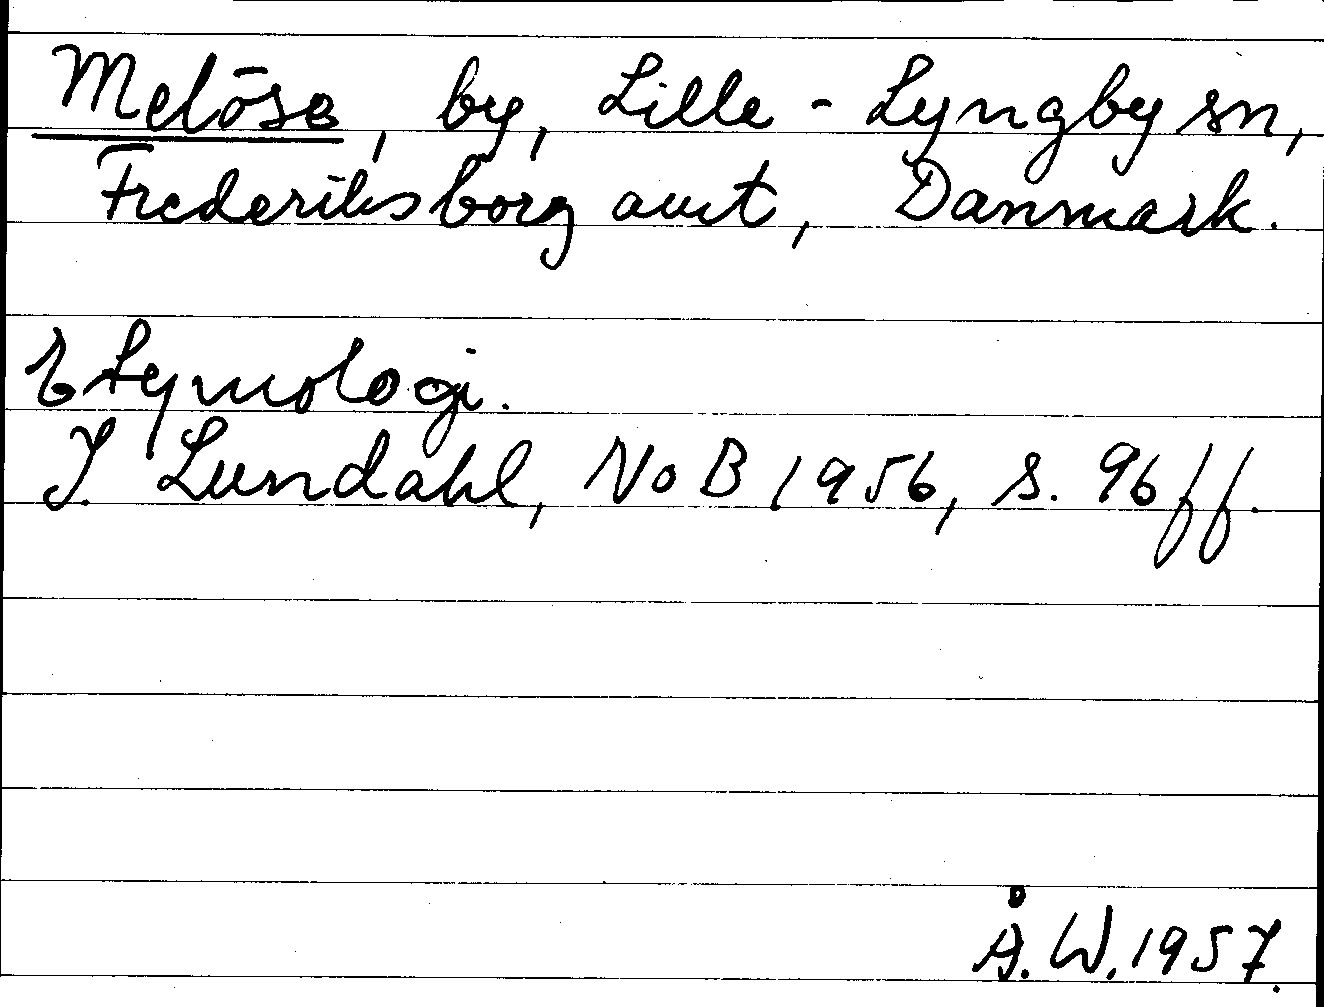 Melöse, by, Lille-Lyngby sn,
Frederiksborg amt, Danmark.
Etymologi.
I. Lundahl, NoB 1956, s. 96 ff.
Å. W. 1957.